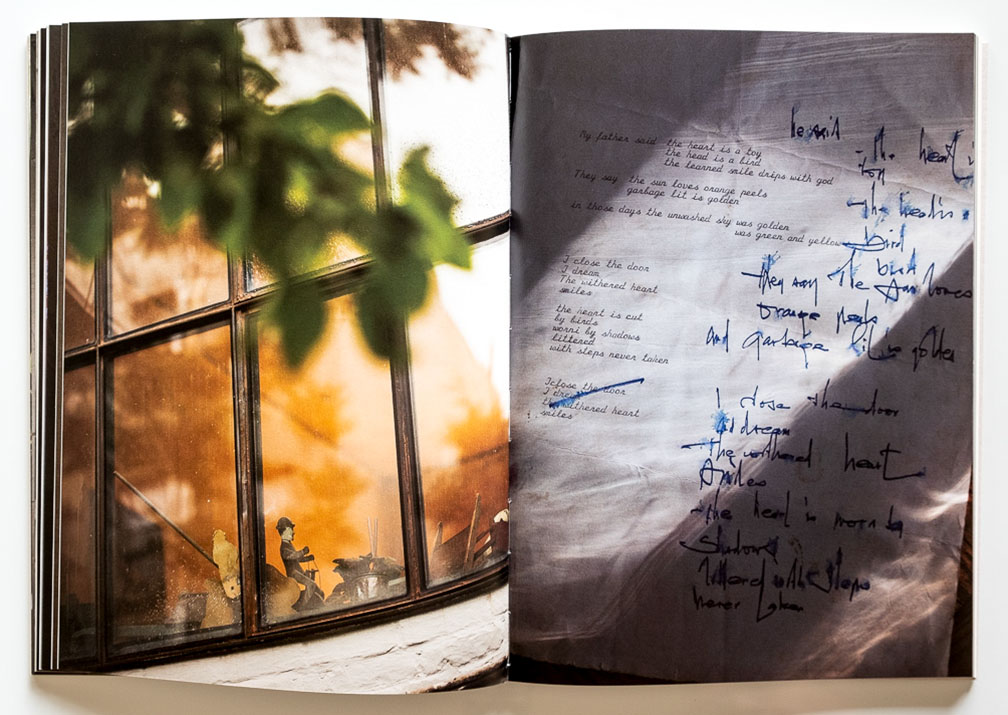 My father said the heart is a toy
the head is a bird
the learned smile drips with god
They say the sun loves orange peels
garbage lit is golden
in those days the unwashed sky was golden
was green and yellow
I close the door
I dream
The withered heart
smiles
the heart is cut
by birds
worn by shadows
littered
with steps never taken
I close the door
I dream
the withered heart
smiles
he said
the heart is
toy
the head is
bird
they say the sun loves
orange peels
and garbage lit is golden
I close the door
I dream
the withered heart
smiles
the heart is worn by
shadows
littered with steps
never taken